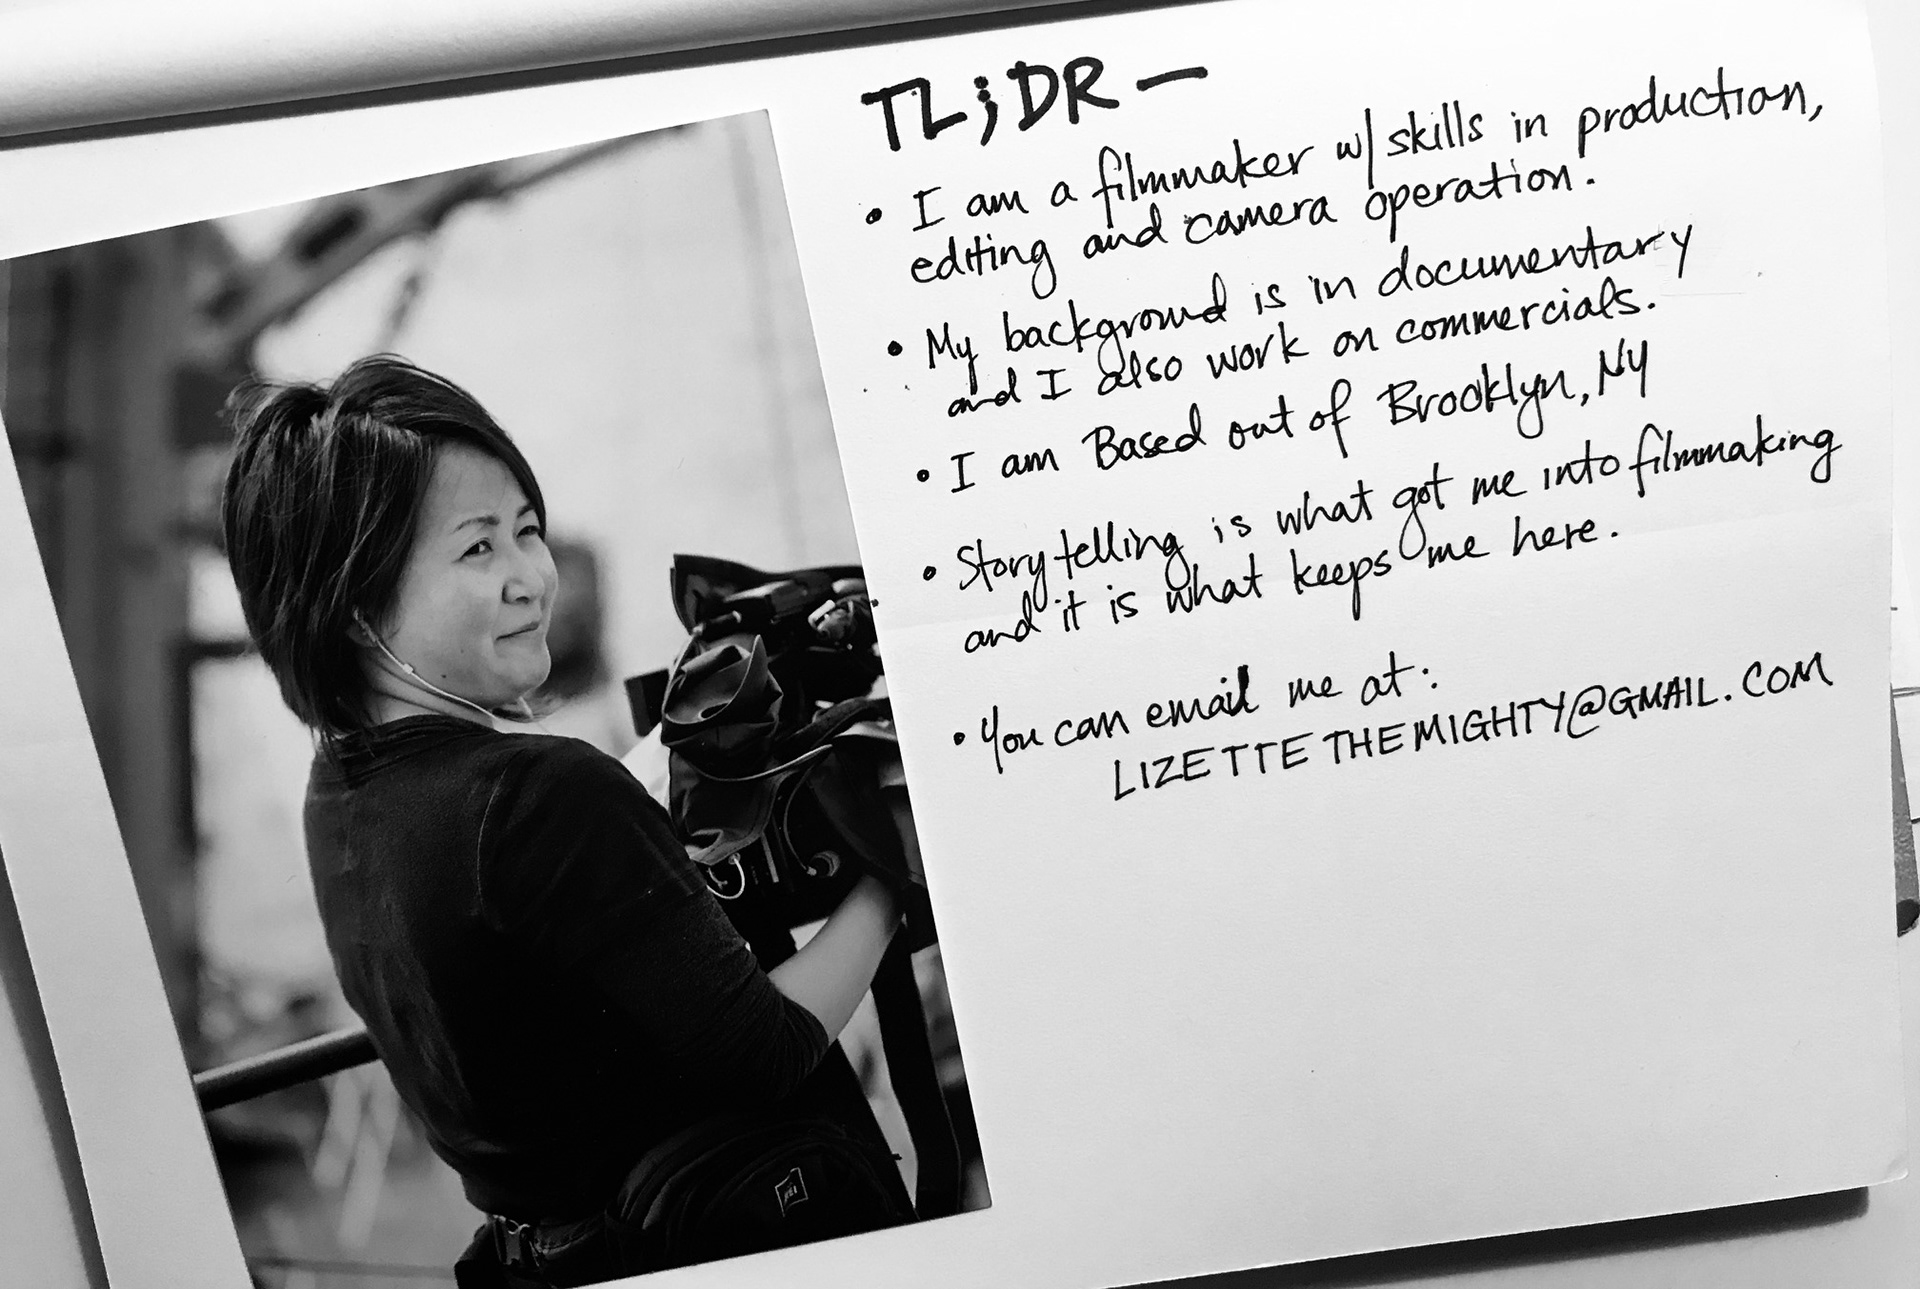 TL;DR —
• I am a filmmaker w/ skills in production,
editing and camera operation.
• My background is in documentary
and I also work on commercials.
• I am Based out of Brooklyn, Ny
• Storytelling is what got me into filmmaking
and it is what keeps me here.
• You can email me at:
LIZETTETHEMIGHTY@GMAIL.COM
REI